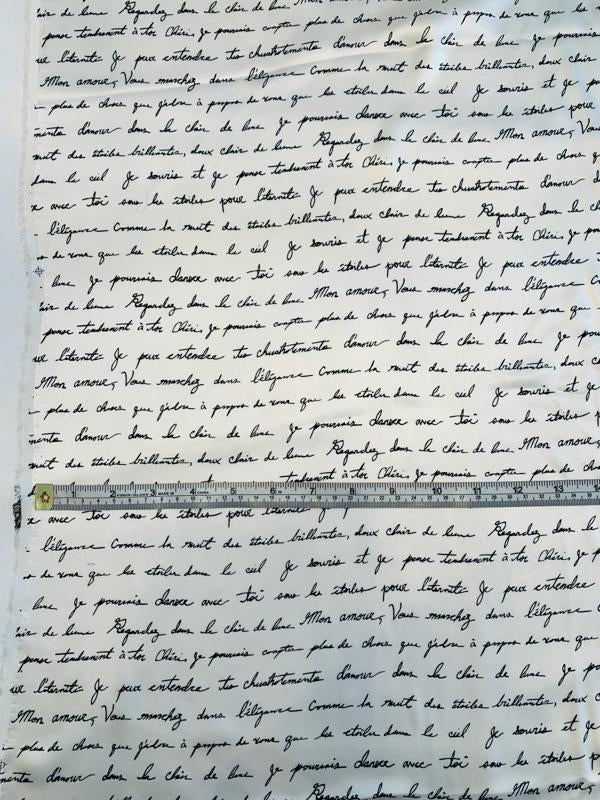 de lune Regardez dans le clair de lune
pense tendrement à toi Chéri, je pourrais compter plus de choses que j'adore à propos de vous que les
l'éternité Je peux entendre tes chuchotements d'amour dans le clair de lune Je pourrais
Mon amour, Vous marchez dans l'élégance Comme la nuit des étoiles brillantes, doux clair
plus de choses que j'adore à propos de vous que les étoiles dans le ciel Je souris et Je
ments d'amour dans le clair de lune Je pourrais danser avec toi sous les étoiles pour
nuit des étoiles brillantes, doux clair de lune Regardez dans le clair de lune Mon amour, Vous
dans le ciel Je souris et je pense tendrement à toi Chéri, je pourrais compter plus de choses
avec toi sous les étoiles pour l'éternité Je peux entendre tes chuchotements d'amour
l'élégance Comme la nuit des étoiles brillantes, doux clair de lune Regardez dans le
de vous que les étoiles dans le ciel Je souris et je pense tendrement à toi Chéri, je
lune Je pourrais danser avec toi sous les étoiles pour l'éternité Je peux entendre
de lune Regardez dans le clair de lune Mon amour, Vous marchez dans l'élégance
pense tendrement à toi Chéri, je pourrais compter plus de choses que j'adore à propos de vous que
l'éternité Je peux entendre tes chuchotements d'amour dans le clair de lune Je
Mon amour, Vous marchez dans l'élégance Comme la nuit des étoiles brillantes, doux
plus de choses que j'adore à propos de vous que les étoiles dans le ciel Je souris et Je
ments d'amour dans le clair de lune Je pourrais danser avec toi sous les étoiles
nuit des étoiles brillantes, doux clair de lune Regardez dans le clair de lune Mon amour,
tendrement à toi Chéri, je pourrais compter plus de
1 2 3 MADE IN 4 CHINA 5 6 7 8 9 10 11 12 13
avec toi sous les étoiles pour l'éternité
l'élégance Comme la nuit des étoiles brillantes, doux clair de lune Regardez dans le
de vous que les étoiles dans le ciel Je souris et je pense tendrement à toi Chéri, je
lune Je pourrais danser avec toi sous les étoiles pour l'éternité Je peux entendre
de lune Regardez dans le clair de lune Mon amour, Vous marchez dans l'élégance
pense tendrement à toi Chéri, je pourrais compter plus de choses que j'adore à propos de vous que
l'éternité Je peux entendre tes chuchotements d'amour dans le clair de lune Je
Mon amour, Vous marchez dans l'élégance Comme la nuit des étoiles brillantes, doux
plus de choses que j'adore à propos de vous que les étoiles dans le ciel Je souris et Je
d'amour dans le clair de lune Je pourrais danser avec toi sous les étoiles
Regardez dans le clair de lune Mon amour,